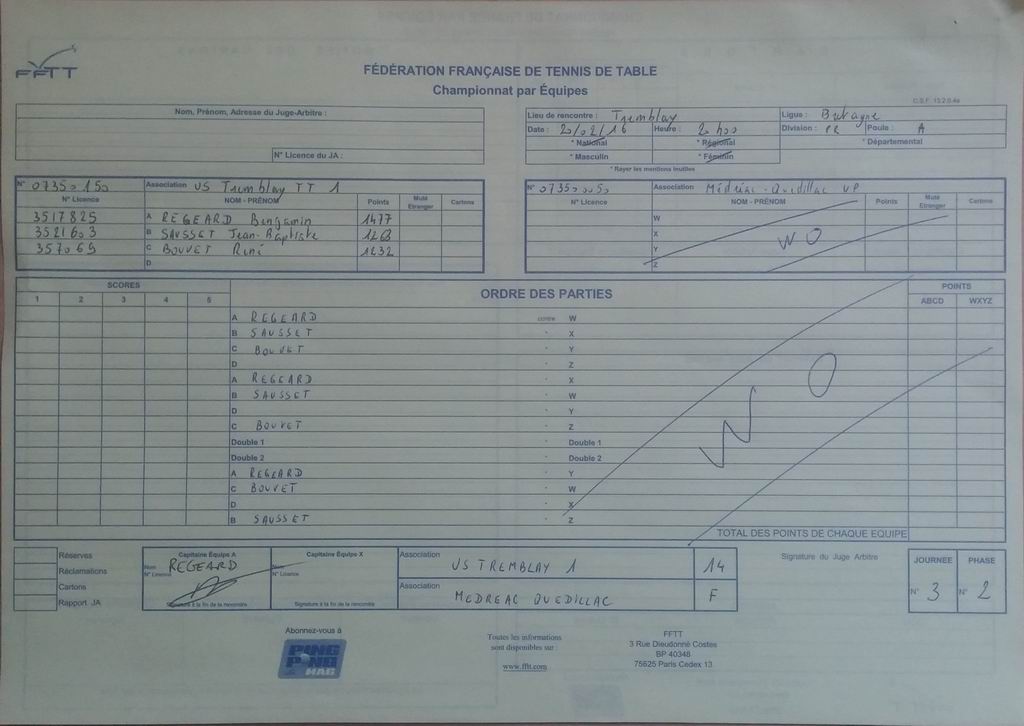 FFTT
FÉDÉRATION FRANÇAISE DE TENNIS DE TABLE
Championnat par Équipes
C.S.F. 13.2.0.4a
Nom, Prénom, Adresse du Juge-Arbitre :
N° Licence du JA :
Lieu de rencontre : Tremblay Ligue : Bretagne
Date : 20/02/16 Heure : 20h00 Division : PR Poule : A
* National * Régional * Départemental
* Masculin * Féminin
* Rayer les mentions inutiles
N° 07350150 Association US Tremblay TT 1
N° Licence NOM - PRÉNOM Points Muté Etranger Cartons
3517825 A REGEARD Benjamin 1477
3521603 B SAUSSET Jean-Baptiste 1263
357069 C BOUVET René 1232
D
N° 07350050 Association Médréac-Quedillac UP
N° Licence NOM - PRÉNOM Points Muté Etranger Cartons
W
X
Y
Z
WO
SCORES ORDRE DES PARTIES POINTS
1 2 3 4 5 ABCD WXYZ
A REGEARD contre W
B SAUSSET " X
C BOUVET " Y
D " Z
A REGEARD " X
B SAUSSET " W
D " Y
C BOUVET " Z
Double 1 " Double 1
Double 2 " Double 2
A REGEARD " Y
C BOUVET " W
D " X
B SAUSSET " Z
WO
TOTAL DES POINTS DE CHAQUE EQUIPE
Réserves
Réclamations
Cartons
Rapport JA
Capitaine Équipe A
Nom REGEARD
N° Licence
Signature à la fin de la rencontre
Capitaine Équipe X
Nom
N° Licence
Signature à la fin de la rencontre
Association US TREMBLAY 1 14
Association MEDREAC QUEDILLAC F
Signature du Juge Arbitre
JOURNEE PHASE
N° 3 N° 2
Abonnez-vous à
PING PONG MAG
Toutes les informations
sont disponibles sur :
www.fftt.com
FFTT
3 Rue Dieudonné Costes
BP 40348
75625 Paris Cedex 13